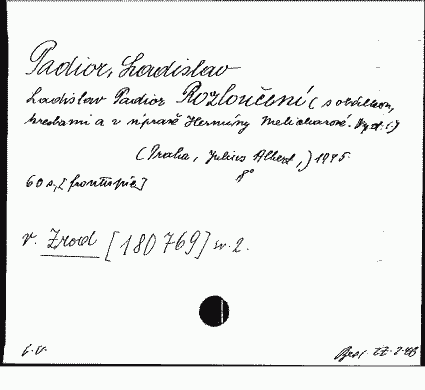 Padior, Ladislav
Ladislav Padior Rozloučení (s obálkou,
kresbami a v úpravě Hermíny Melicharové. Vyd. 1)
(Praha, Julius Albert,) 1945
8°
60 s, [frontispic]
v. Zrod [180769] sv. 2.